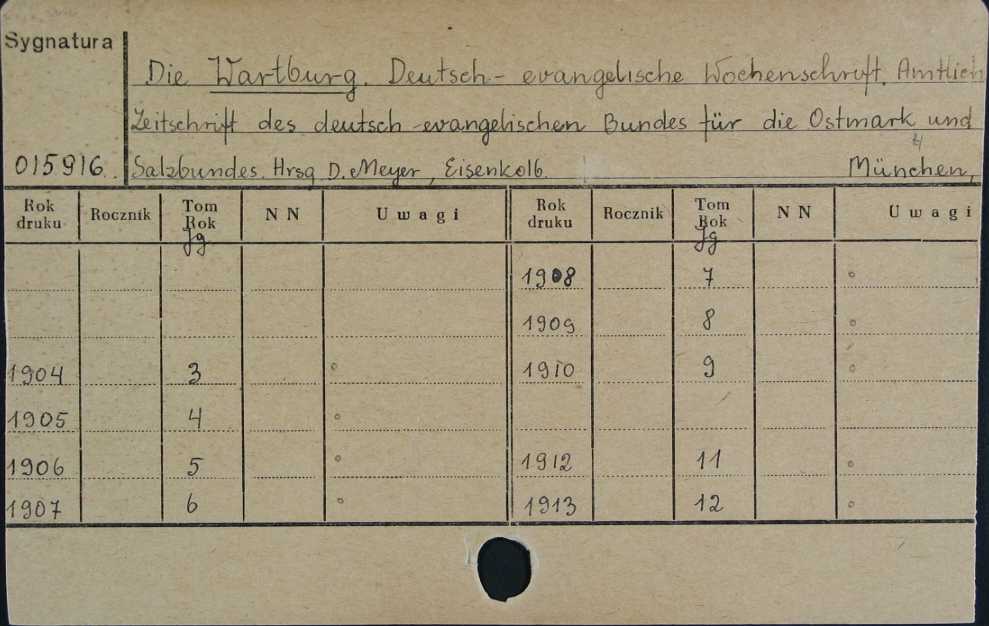 Sygnatura
Die Wartburg. Deutsch-evangelische Wochenschrift. Amtlich
Zeitschrift des deutsch-evangelischen Bundes für die Ostmark und
015916. Salzbundes. Hrsg D. Meyer, Eisenkolb. München,
Rok druku Rocznik Tom Rok Jg NN Uwagi Rok druku Rocznik Tom Rok Jg NN Uwagi
1908 7 °
1909 8 °
1904 3 ° 1910 9 °
1905 4 °
1906 5 ° 1912 11 °
1907 6 ° 1913 12 °